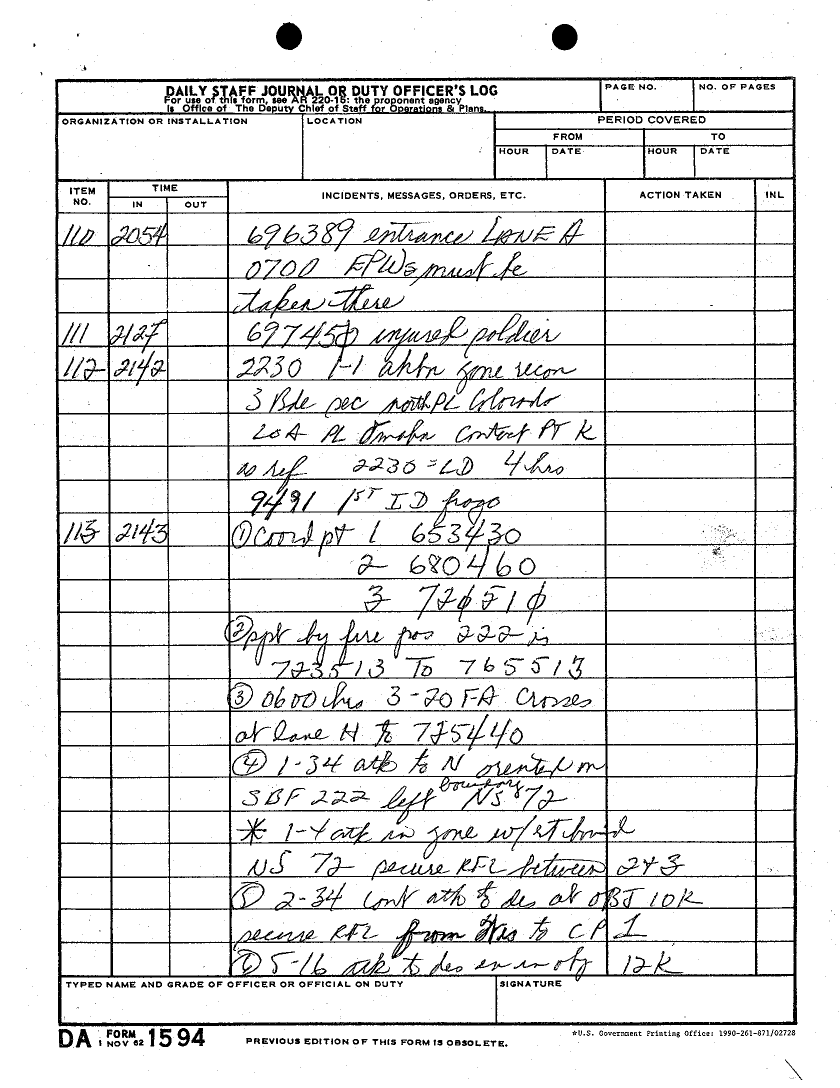 DAILY STAFF JOURNAL OR DUTY OFFICER'S LOG
For use of this form, see AR 220-15; the proponent agency
is Office of The Deputy Chief of Staff for Operations & Plans.
PAGE NO.
NO. OF PAGES
ORGANIZATION OR INSTALLATION
LOCATION
PERIOD COVERED
FROM
TO
HOUR
DATE
HOUR
DATE
ITEM NO.
TIME
IN
OUT
INCIDENTS, MESSAGES, ORDERS, ETC.
ACTION TAKEN
INL
110 2054 696389 entrance LANE A
0700 EPWs must be
taken there
111 2127 injured soldier
112 2142 2230 1-1 zone recon
3 Bde sec north PL Colorado
LOA PL Omaha Contact PT K
as ref 2230 = LD 4 hrs
1ST ID frago
113 2143 ① Coord pt 1 653430
2 680460
3 720510
② spt by fire pos 222 is
723513 TO 765513
③ 0600 hrs 3-20 FA Crosses
at lane H to 725440
④ 1-34 atk to N orented on
SBF 222 left boundary NS 72
* 1-4 atk in zone w/
NS 72 secure RFL between 2+3
⑤ 2-34 cont atk to des at OBJ 10K
secure RFL from to CP 1
⑥ 5-16 atk to des en in obj 12K
TYPED NAME AND GRADE OF OFFICER OR OFFICIAL ON DUTY
SIGNATURE
DA FORM 1 NOV 62 1594
PREVIOUS EDITION OF THIS FORM IS OBSOLETE.
*U.S. Government Printing Office: 1990-261-871/02728